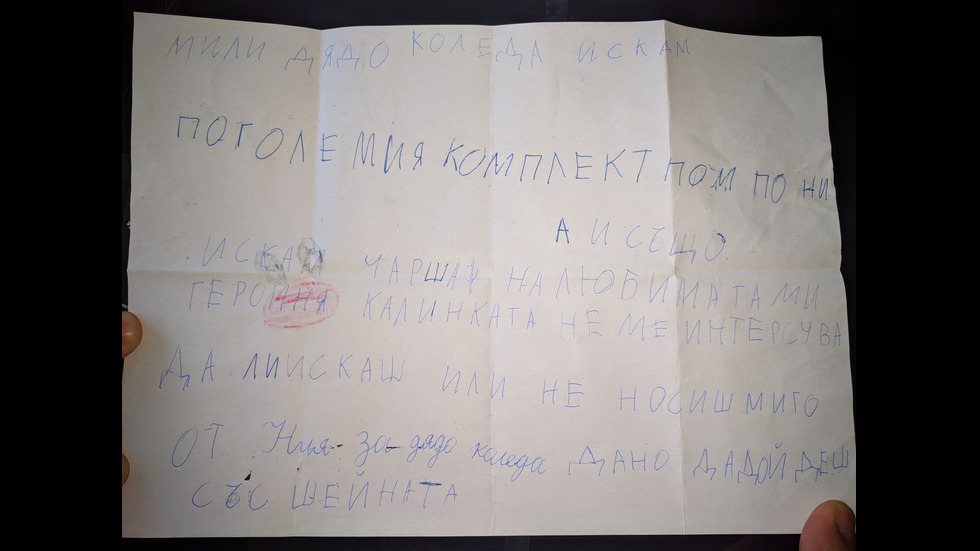 МИЛИ ДЯДО КОЛЕДА ИСКАМ
ПОГОЛЕМИЯ КОМПЛЕКТ ПОМ ПО НИ
А И СЪЩО.
ИСКАМ ЧАРШАФ НАЛЮБИМАТАМИ
ГЕРОИНЯ КАЛИНКАТА НЕ МЕ ИНТЕРСУВА
ДА ЛИИСКАШ ИЛИ НЕ НОСИШ МИГО
ОТ Ния- за дядо коледа ДАНО ДАДОЙДЕШ
СЪС ШЕЙНАТА